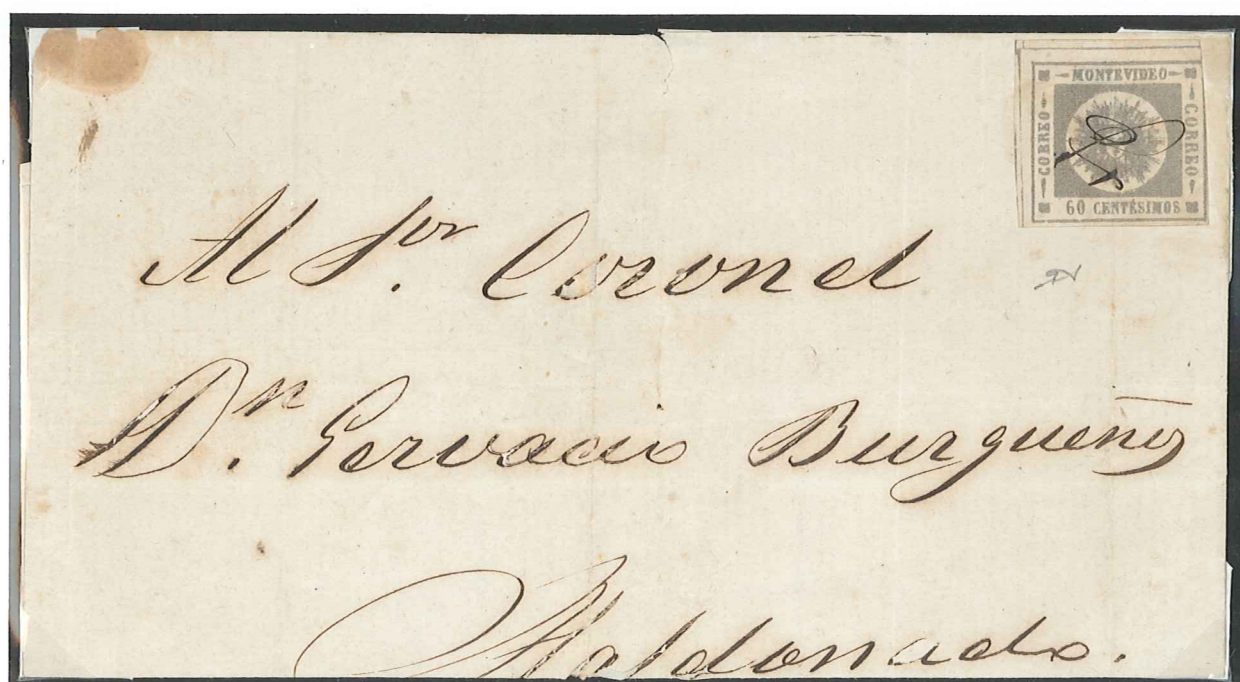 MONTEVIDEO
CORREO
CORREO
60 CENTÉSIMOS
Al Sor. Coronel
Dn. Gervacio Burgueño
Maldonado.